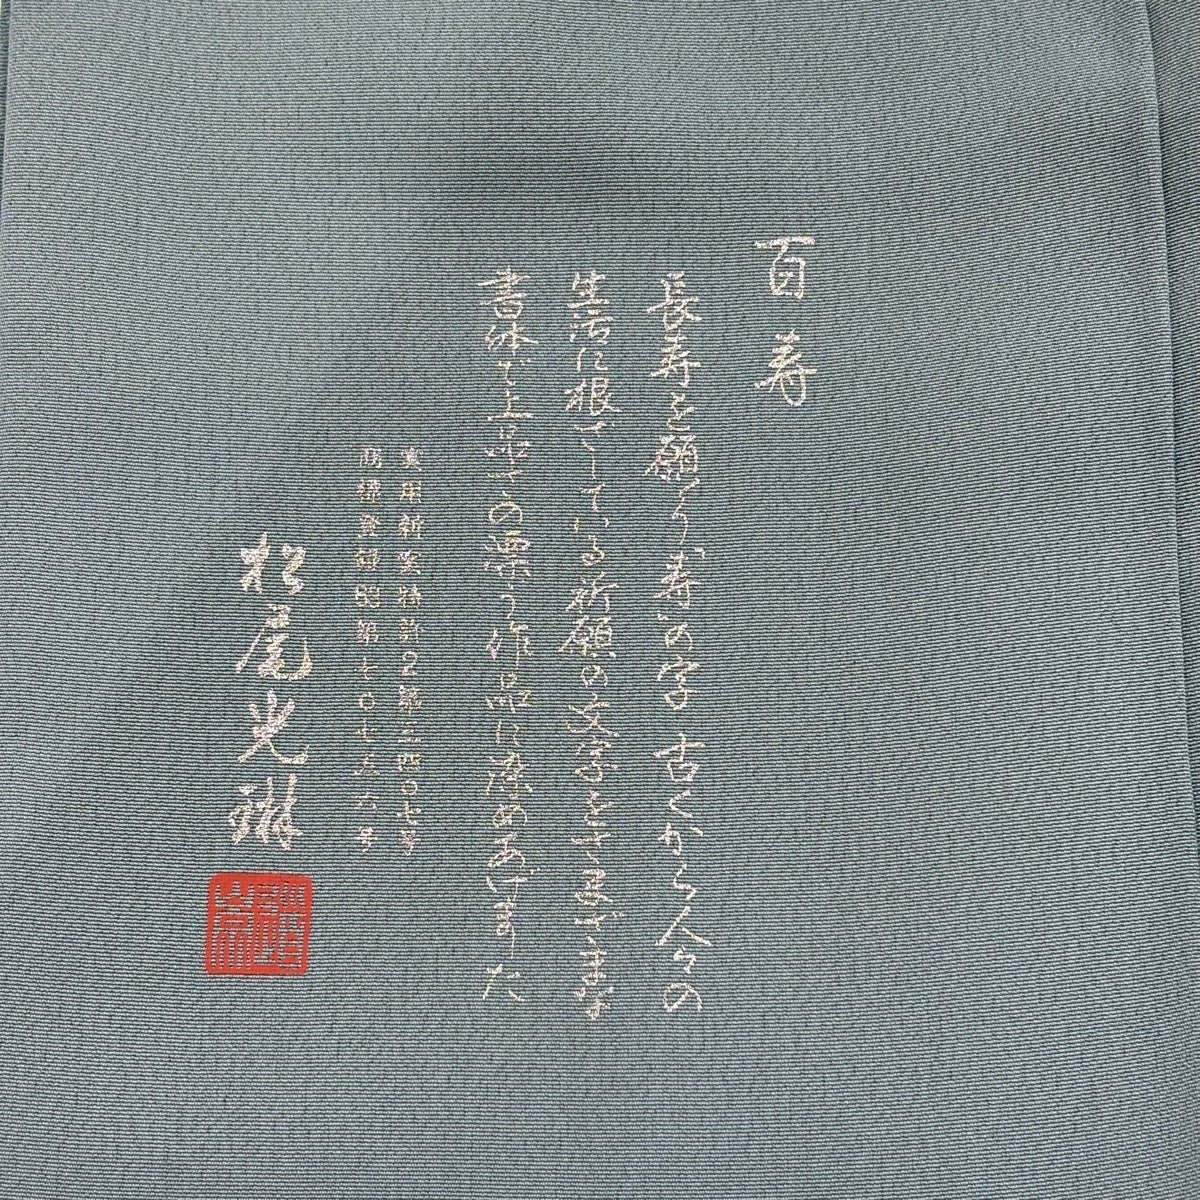 百寿
長寿を願う“寿”の字 古くから人々の
生活に根ざしている祈願の文字をさまざまな
書体で上品での漂う作品に染めあげました
実用新案特許2第三四〇七号
商標登録昭第七〇七五六号
松尾光琳